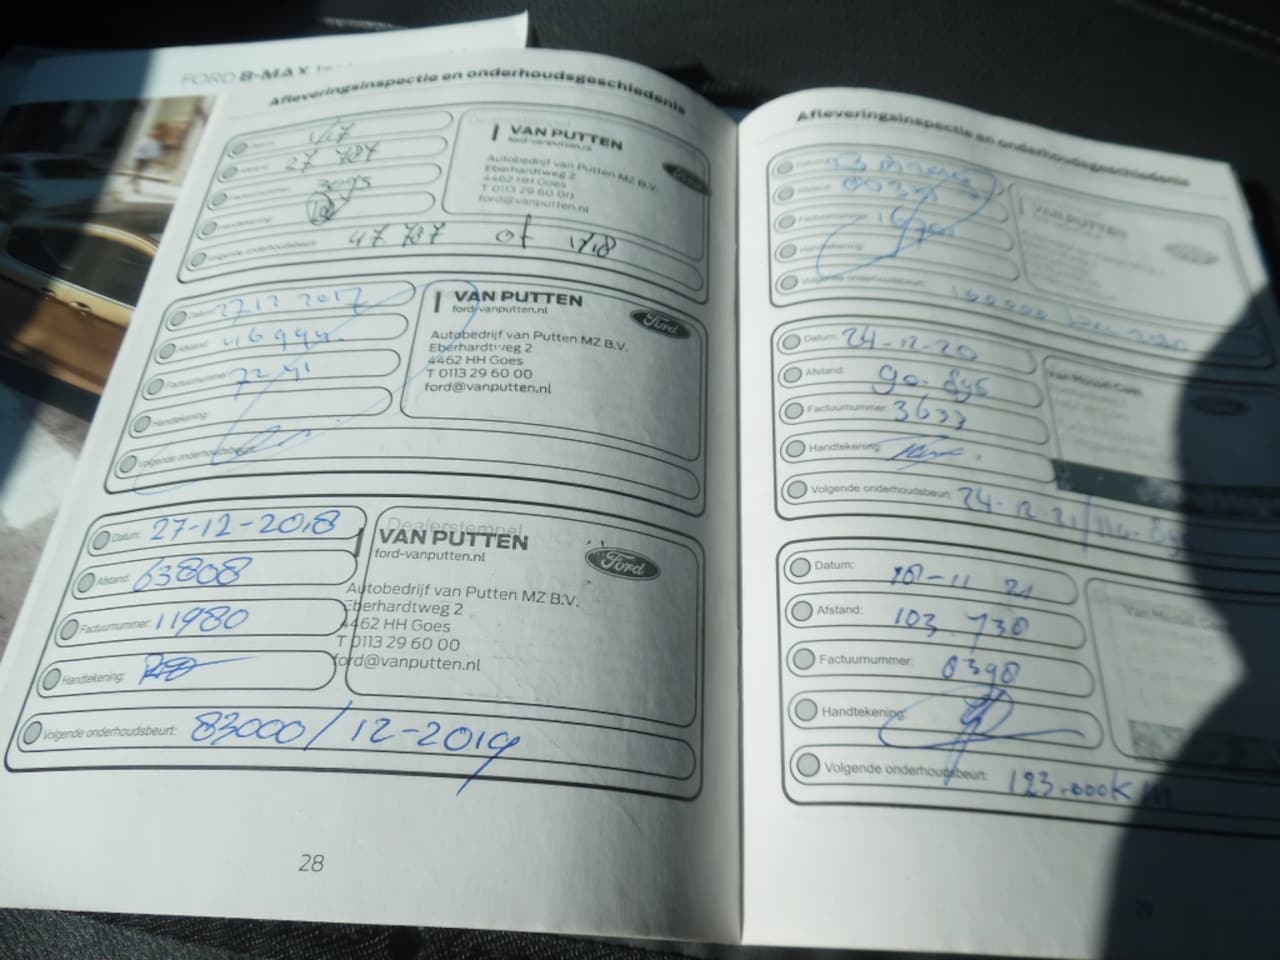 FORD B-MAX
Afleveringsinspectie en onderhoudsgeschiedenis
1/17
27 787
3095
Volgende onderhoudsbeurt: 47 787 of 1/18
VAN PUTTEN
ford-vanputten.nl
Autobedrijf van Putten MZ B.V.
Eberhardtweg 2
4462 HH Goes
T 0113 29 60 00
ford@vanputten.nl
Datum: 27 12 2017
Afstand: 46994
Factuurnummer:
Handtekening:
Volgende onderhoudsbeurt:
VAN PUTTEN
ford-vanputten.nl
Ford
Autobedrijf van Putten MZ B.V.
Eberhardtweg 2
4462 HH Goes
T 0113 29 60 00
ford@vanputten.nl
Datum: 27-12-2018
Afstand: 63808
Factuurnummer: 11980
Handtekening:
Volgende onderhoudsbeurt: 83000/12-2019
Dealerstempel
VAN PUTTEN
ford-vanputten.nl
Ford
Autobedrijf van Putten MZ B.V.
Eberhardtweg 2
4462 HH Goes
T 0113 29 60 00
ford@vanputten.nl
28
Afleveringsinspectie en onderhoudsgeschiedenis
Datum:
Afstand:
Factuurnummer:
Handtekening:
Volgende onderhoudsbeurt:
VAN PUTTEN
Datum: 24-12-20
Afstand: 90.845
Factuurnummer: 3633
Handtekening:
Volgende onderhoudsbeurt: 24-12-21/
Datum: 18-11 21
Afstand: 103.730
Factuurnummer: 8398
Handtekening:
Volgende onderhoudsbeurt: 123.000KM
29